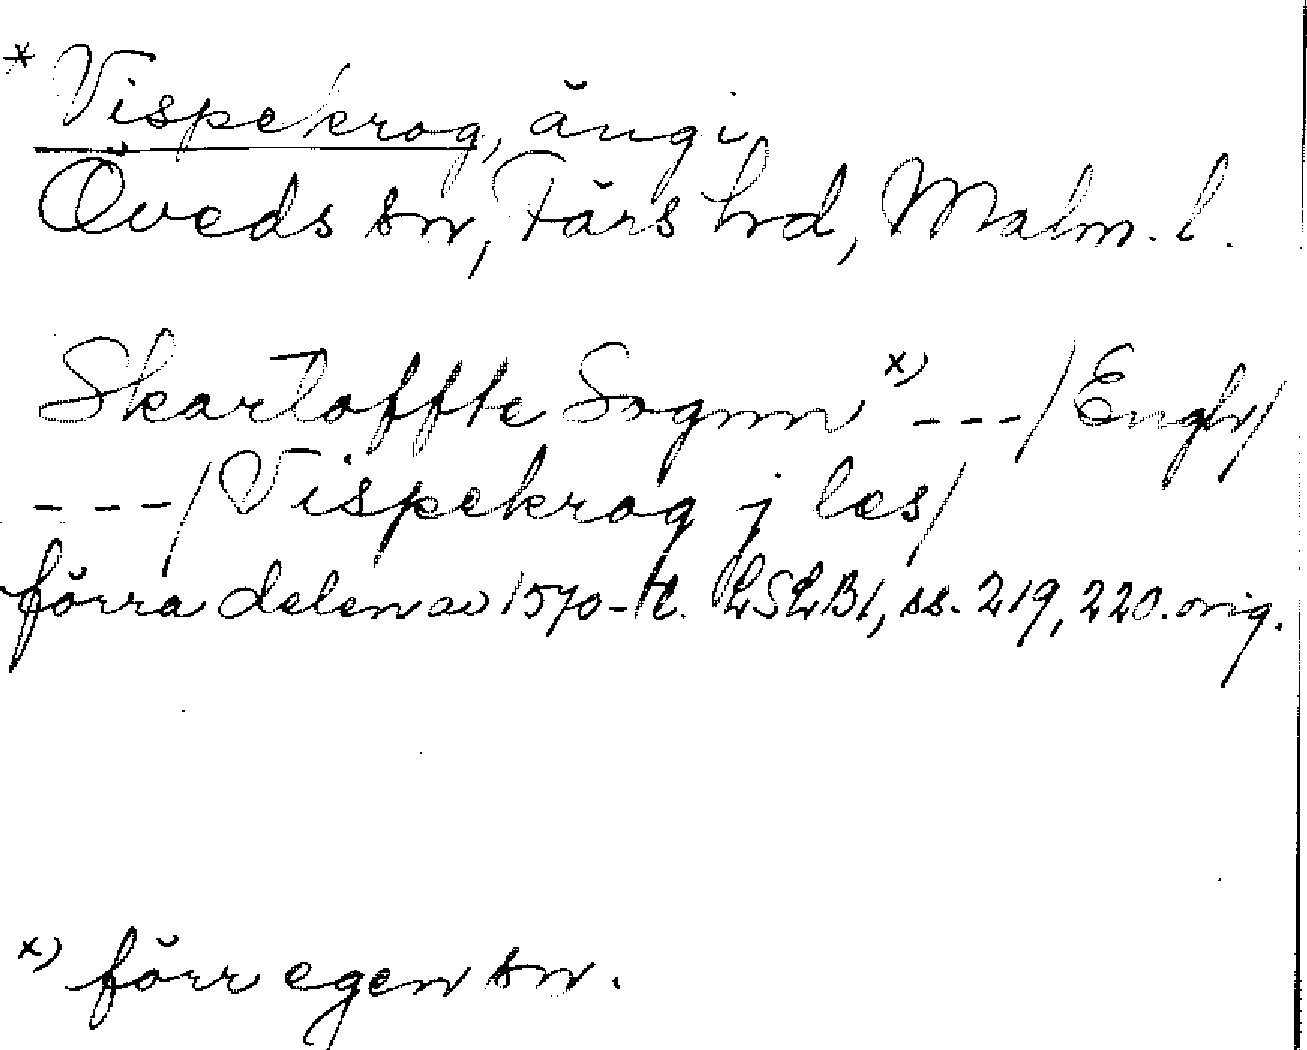 * Vispekrog, äng i
Öveds sn, Färs hd, Malm. l.
Skartoffte Sognn x) ---/ Engh/
---/ Vispekrog j les/
förra delen av 1570-t. LSLB1, ss. 219, 220. orig.
x) förr egen sn.